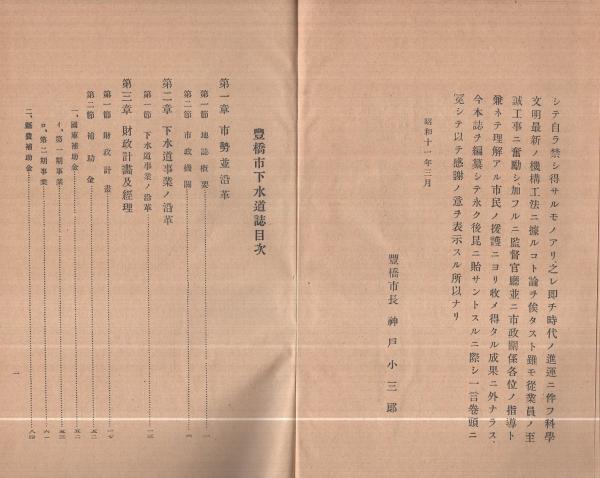 シテ自ラ禁シ得サルモノアリ、之レ即チ時代ノ進運ニ伴フ科學
文明最新ノ機構工法ニ據ルコト論ヲ俟タスト雖モ從業員ノ至
誠工事ニ奮勵シ、加フルニ監督官廳並ニ市政關係各位ノ指導ト
兼ネテ理解アル市民ノ援護ニヨリ收メ得タル成果ニ外ナラス、
今本誌ヲ編纂シテ永ク後昆ニ貽サントスルニ際シ一言卷頭ニ
冕シテ以テ感謝ノ意ヲ表示スル所以ナリ
昭和十一年三月
豐橋市長 神戸小三郎
豐橋市下水道誌目次
第一章 市勢並沿革
第一節 地誌概要 一
第二節 市政機關 六
第二章 下水道事業ノ沿革
第一節 下水道事業ノ沿革 一三
第三章 財政計畫及經理
第一節 財政計畫 一七
第二節 補助金 五二
一、國庫補助金 五二
イ、第一期事業 五三
ロ、第二期事業 六一
二、縣費補助金 八四
一